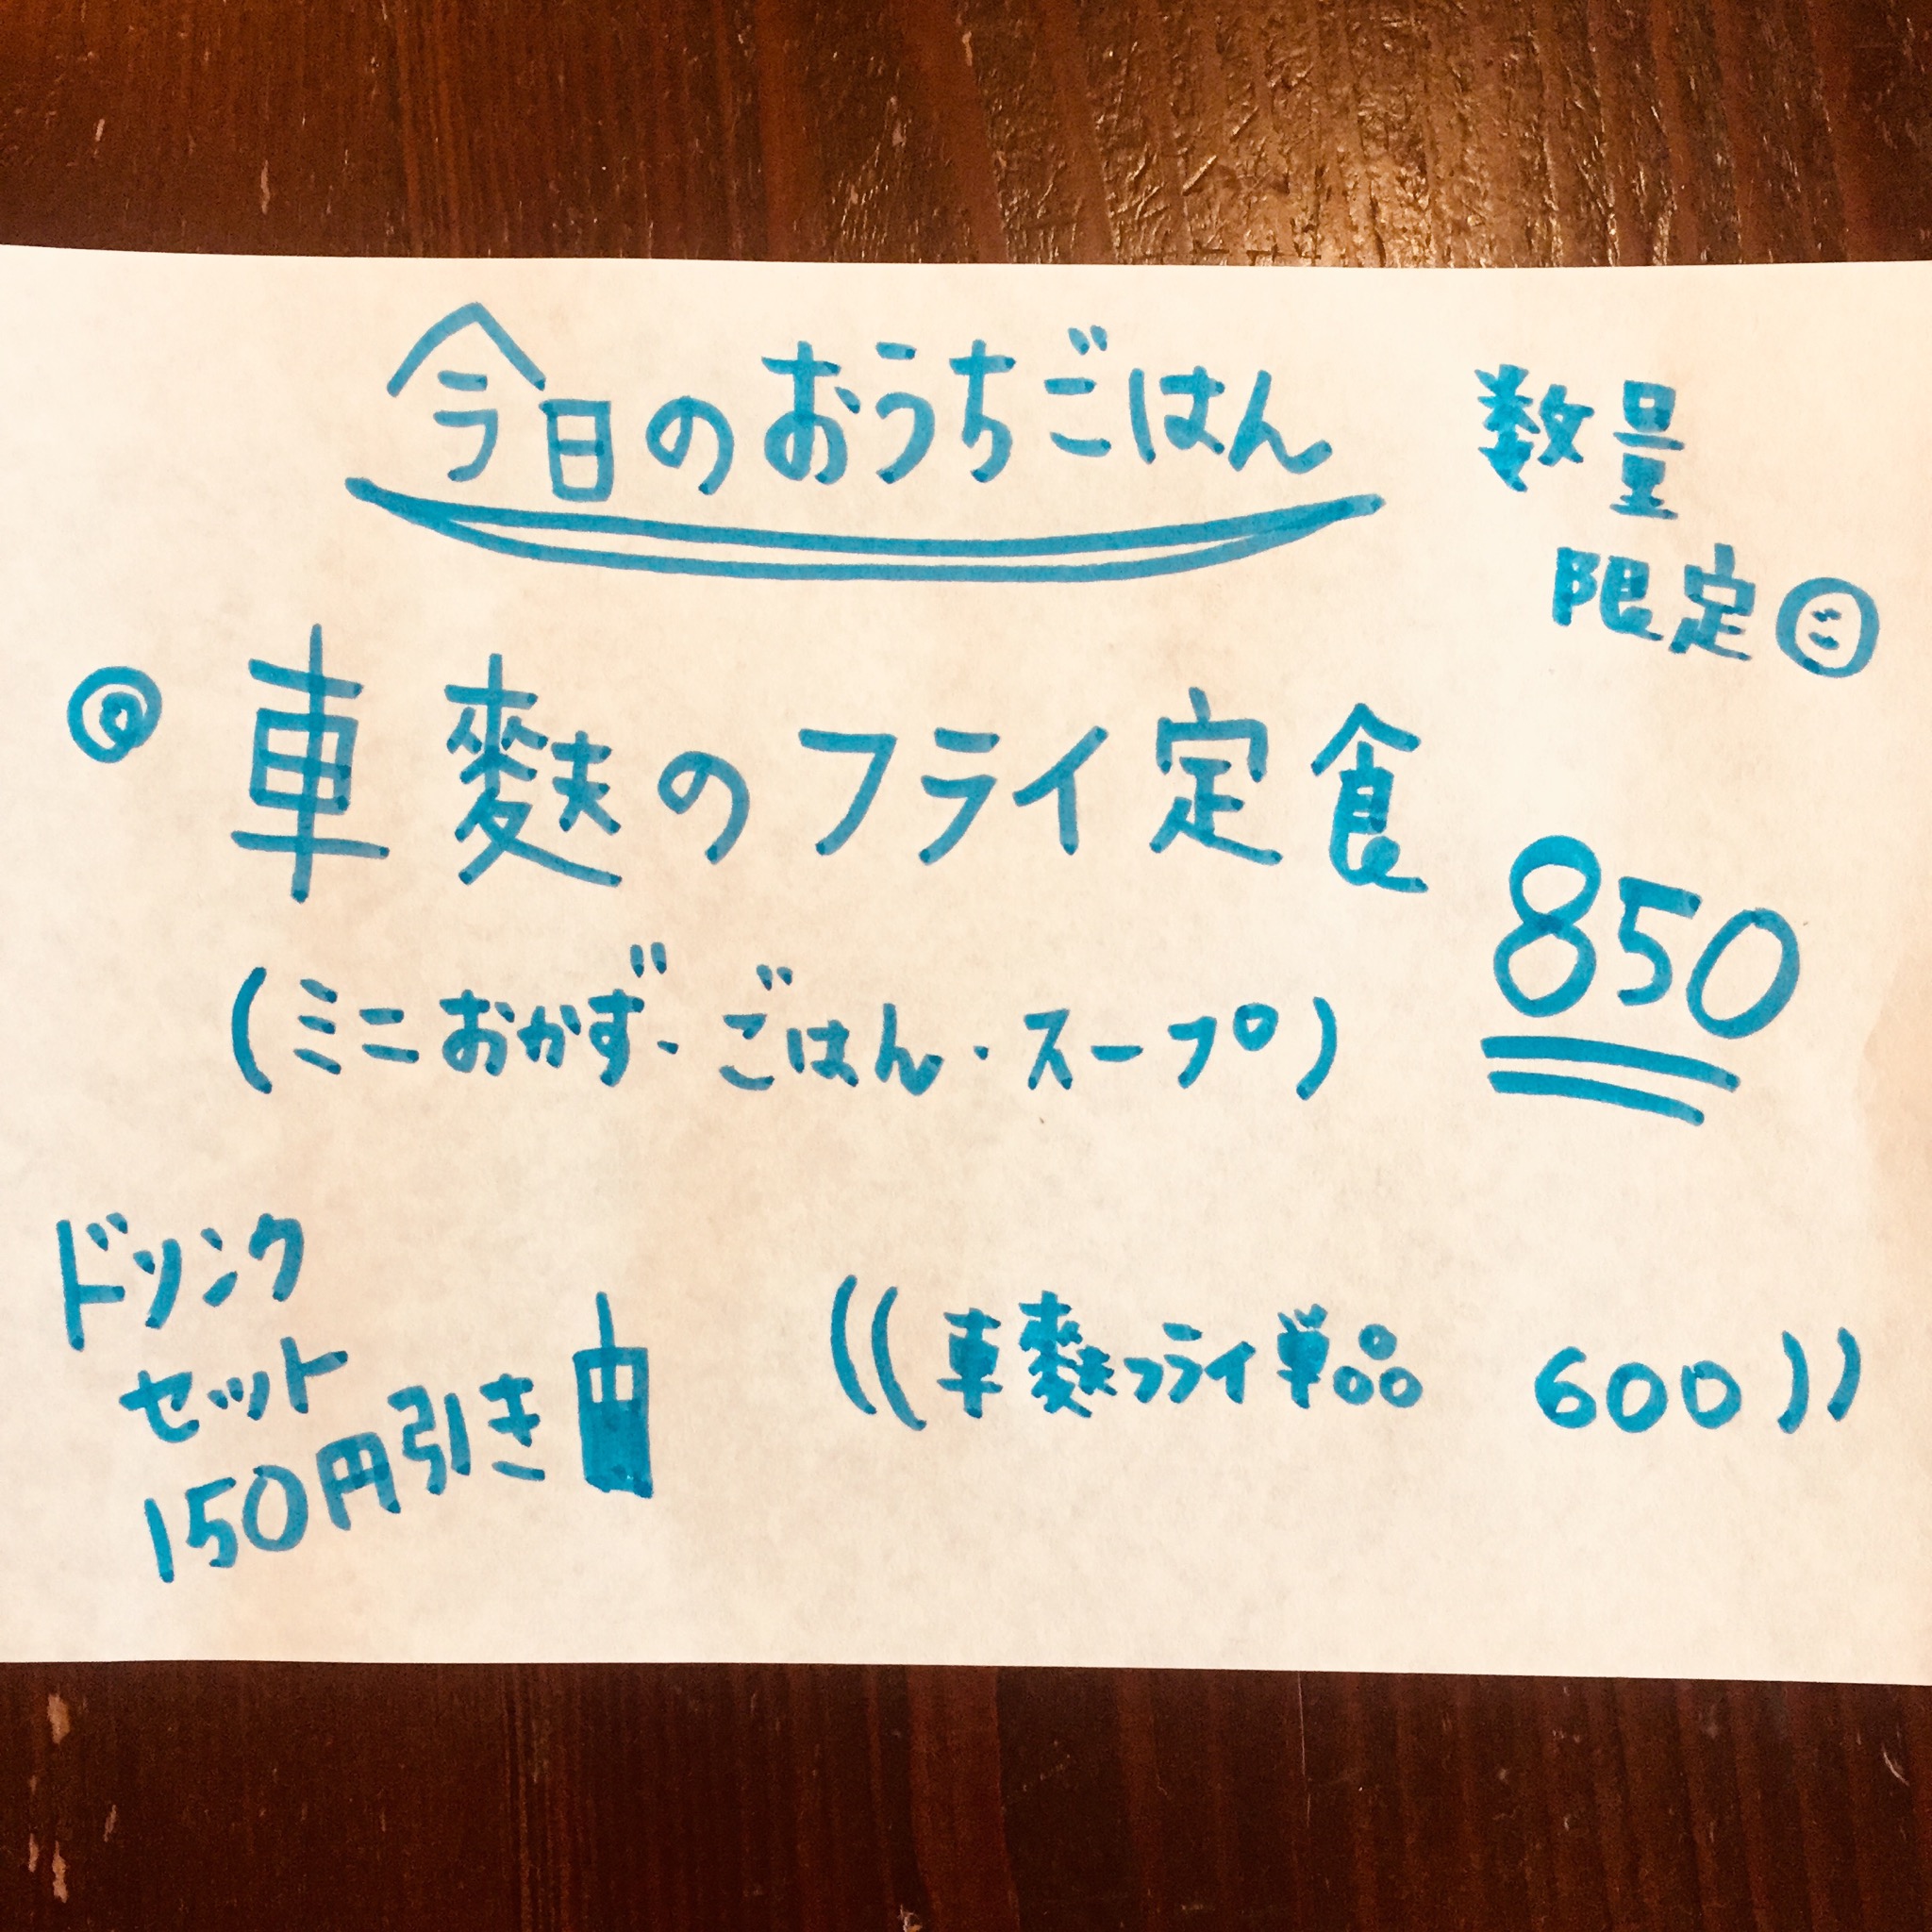 今日のおうちごはん
数量
限定
◎車麩のフライ定食
850
(ミニおかず・ごはん・スープ)
ドリンク
セット
150円引き
((車麩フライ単品 600))